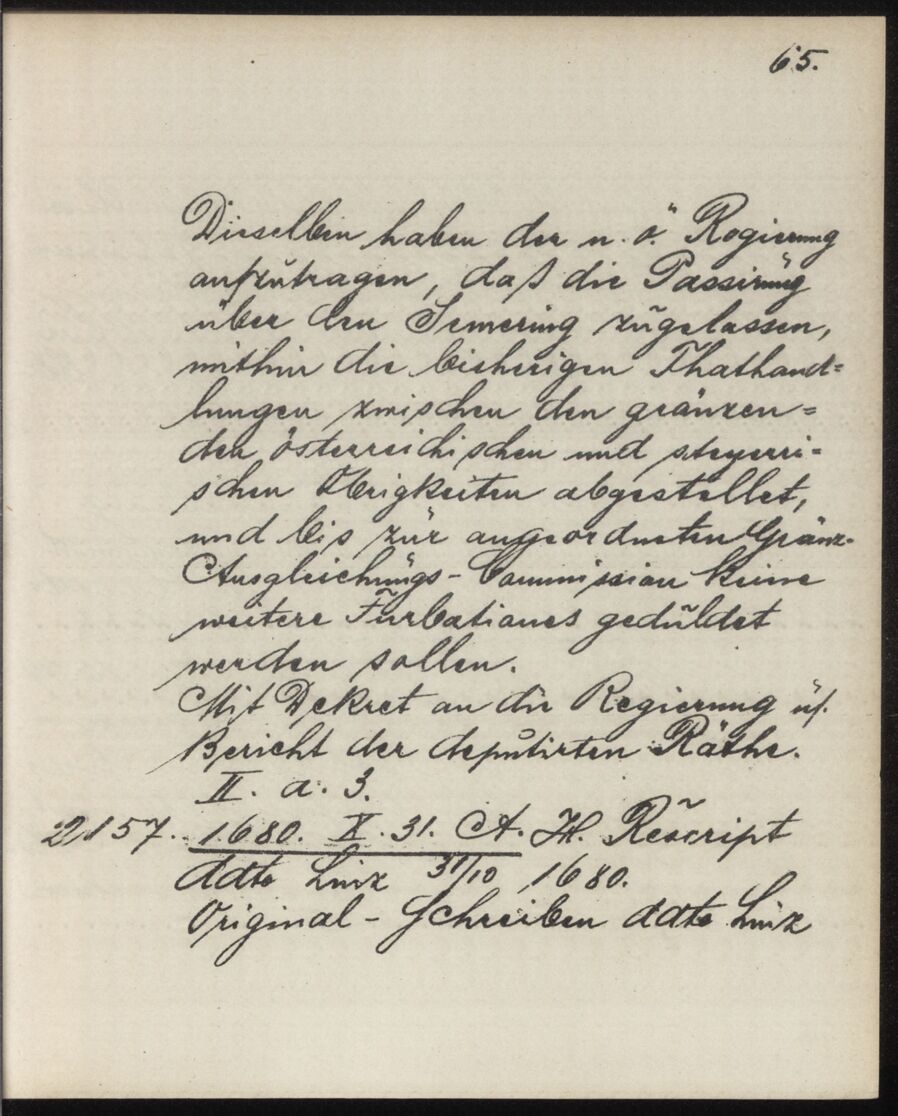 65.
Dieselben haben der n. ö. Regierung
aufzutragen, daß die Passirung
über den Semering zugelassen,
mithin die bisherigen Thathand=
lungen zwischen den gränzen=
den österreichischen und steyerri=
schen Obrigkeiten abgestellet,
und bis zur angeordneten Gränz-
Ausgleichungs-Commission keine
weitere Turbationes geduldet
werden sollen.
Mit Dekret an die Regierung u/.
Bericht der deputirten Räthe.
II. a. 3.
2157. 1680. X. 31. A. H. Rescript
ddto Linz 31/10 1680.
Original-Schreiben ddto Linz